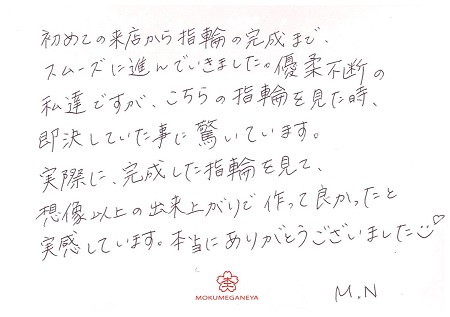 初めての来店から指輪の完成まで、
スムーズに進んでいきました。優柔不断の
私達ですが、こちらの指輪を見た時、
即決していた事に驚いています。
実際に、完成した指輪を見て、
想像以上の出来上がりで作って良かったと
実感しています。本当にありがとうございました
MOKUMEGANEYA
M.N